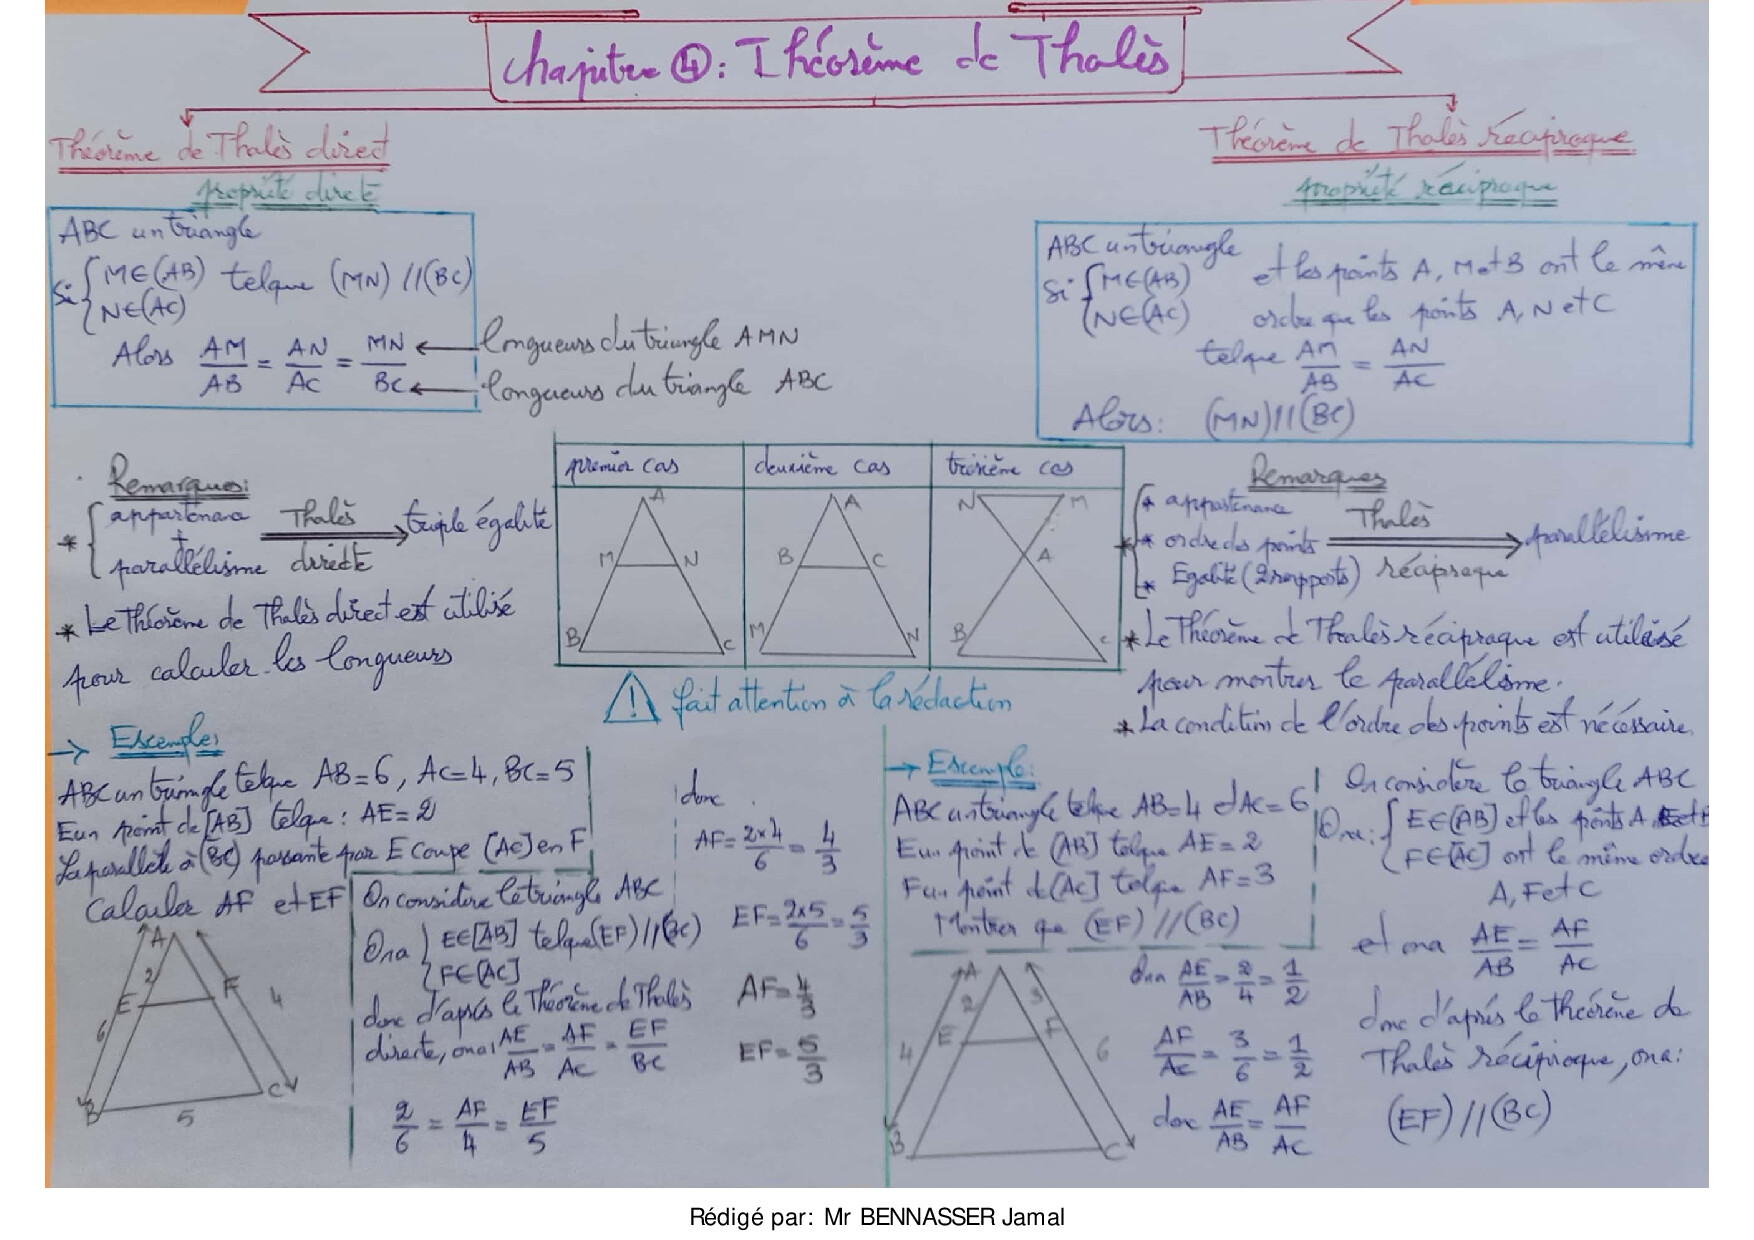 Chapitre ④: Théorème de Thalès
Théorème de Thalès direct
propriété directe
ABC un triangle
Si { M∈(AB) telque (MN) //(BC)
N∈(AC)
Alors AM/AB = AN/AC = MN/BC
← longueurs du triangle AMN
← longueurs du triangle ABC
Remarques:
* { appartenance + parallélisme ⟹ Thalès directe triple égalité
* Le théorème de Thalès direct est utilisé
pour calculer les longueurs
Théorème de Thalès réciproque
propriété réciproque
ABC un triangle
Si { M∈(AB) et les points A, M et B ont le même
N∈(AC) ordre que les points A, N et C
telque AM/AB = AN/AC
Alors: (MN)//(BC)
premier cas
A
M N
B C
deuxième cas
A
B C
M N
troisième cas
N M
A
B C
⚠ fait attention à la rédaction
Remarques
* appartenance
* ordre des points
* Egalité (2 rapports)
Thalès réciproque ⟹ parallélisme
* Le Théorème de Thalès réciproque est utilisé
pour montrer le parallélisme.
* La condition de l'ordre des points est nécéssaire.
→ Exemple:
ABC un triangle telque AB=6, AC=4, BC=5
E un point de [AB] telque: AE=2
La parallèle à (BC) passante par E coupe [AC] en F
Calculer AF et EF
A
2
E F
6 4
B C
5
On considère le triangle ABC
Ona { E∈[AB] telque (EF)//(BC)
F∈[AC]
donc d'après le Théorème de Thalès
directe, ona: AE/AB = AF/AC = EF/BC
2/6 = AF/4 = EF/5
donc
AF= 2×4/6 = 4/3
EF= 2×5/6 = 5/3
AF= 4/3
EF= 5/3
→ Exemple:
ABC un triangle telque AB=4 et AC=6
E un point de [AB] telque AE=2
F un point de [AC] telque AF=3
Montrer que (EF) //(BC)
A
2 3
E F
4 6
B C
AE/AB = 2/4 = 1/2
AF/AC = 3/6 = 1/2
donc AE/AB = AF/AC
On considère le triangle ABC
Ona: { E∈[AB] et les points A, E et B
F∈[AC] ont le même ordre
A, F et C
et ona AE/AB = AF/AC
donc d'après le théorème de
Thalès réciproque, ona:
(EF) //(BC)
Rédigé par: Mr BENNASSER Jamal